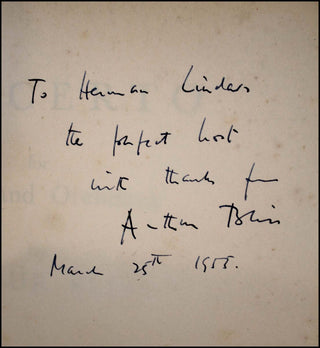 To Herman Lindars
the perfect host
with thanks from
Arthur Bliss
March 25th 1955.